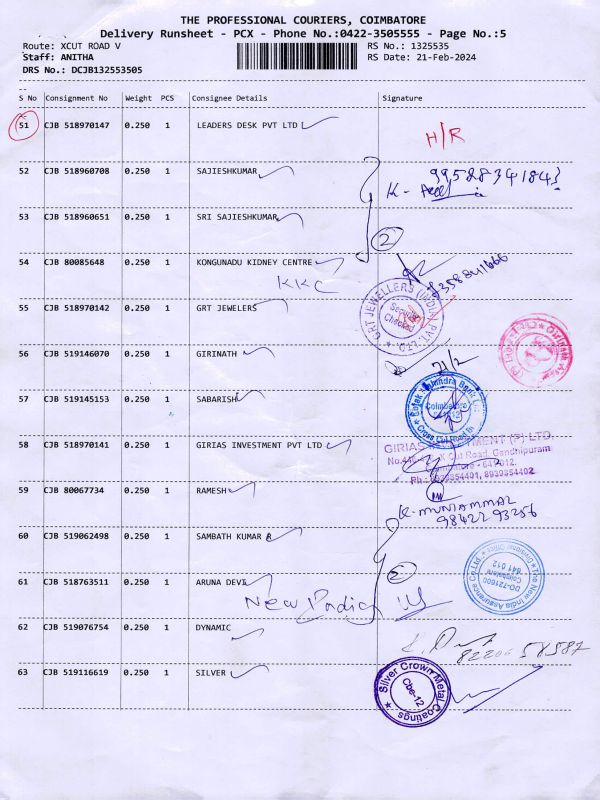 THE PROFESSIONAL COURIERS, COIMBATORE
Delivery Runsheet - PCX - Phone No.:0422-3505555 - Page No.:5
Route: XCUT ROAD V RS No.: 1325535
Staff: ANITHA RS Date: 21-Feb-2024
DRS No.: DCJB132553505
S No Consignment No Weight PCS Consignee Details Signature
51 CJB 518970147 0.250 1 LEADERS DESK PVT LTD
H/R
52 CJB 518960708 0.250 1 SAJIESHKUMAR 9952834184
K-
53 CJB 518960651 0.250 1 SRI SAJIESHKUMAR
2
54 CJB 80085648 0.250 1 KONGUNADU KIDNEY CENTRE
KKC
55 CJB 518970142 0.250 1 GRT JEWELERS
GRT JEWELLERS (INDIA) PVT. LTD.
Security Checked
56 CJB 519146070 0.250 1 GIRINATH
21/2
57 CJB 519145153 0.250 1 SABARISH
Kotak Mahindra Bank Ltd
Coimbatore
Cross Cut Road Br.
58 CJB 518970141 0.250 1 GIRIAS INVESTMENT PVT LTD
GIRIAS INVESTMENT (P) LTD.
Cut Road, Gandhipuram
Coimbatore - 641 012.
Ph : 8939854401, 8939854402
59 CJB 80067734 0.250 1 RAMESH
K-MUNIAMMAL
98422 93256
60 CJB 519062498 0.250 1 SAMBATH KUMAR R
2
The New India Assurance Co.Ltd.
DO-721600
Coimbatore
641 012
61 CJB 518763511 0.250 1 ARUNA DEVI
New India
62 CJB 519076754 0.250 1 DYNAMIC
8220658587
63 CJB 519116619 0.250 1 SILVER
Silver Crown Metal Coatings
Cbe-12